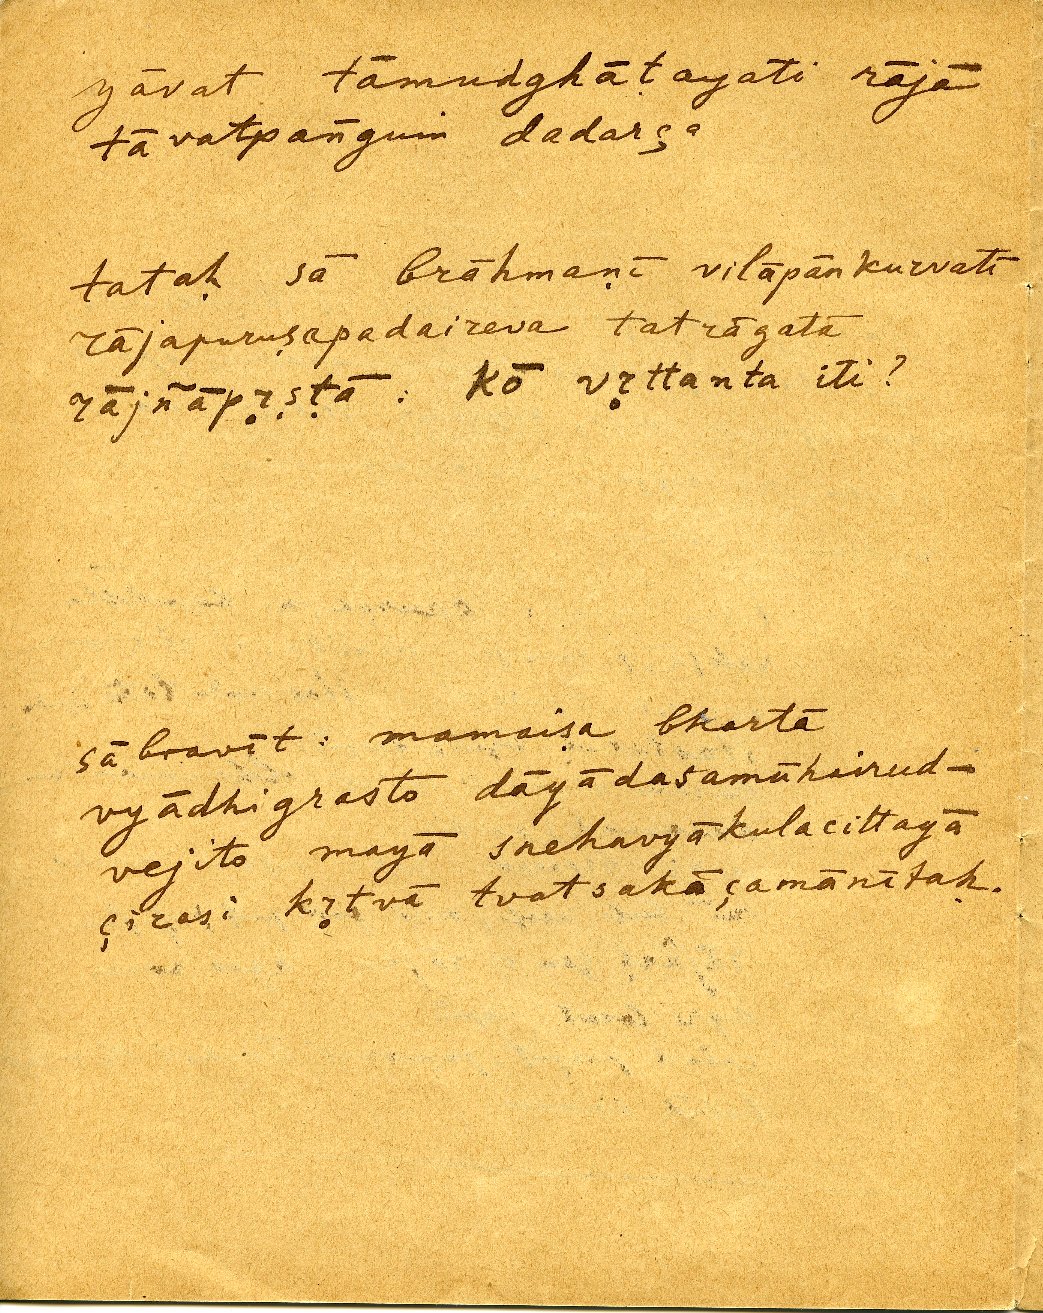 yāvat tāmudghāṭayati rājā
tāvatpan̄guṁ dadarça
tataḥ sā brāhmaṇī vilāpānkurvatī
rājapuruṣapadaireva tatrāgatā
rājñāpṛṣṭā : Kō vṛttanta iti?
sābravīt : mamaiṣa bhartā
vyādhigrasto dāyādasamūhairud-
vejito mayā snehavyākulacittayā
çirasi kṛtvā tvatsakāçamānītaḥ.